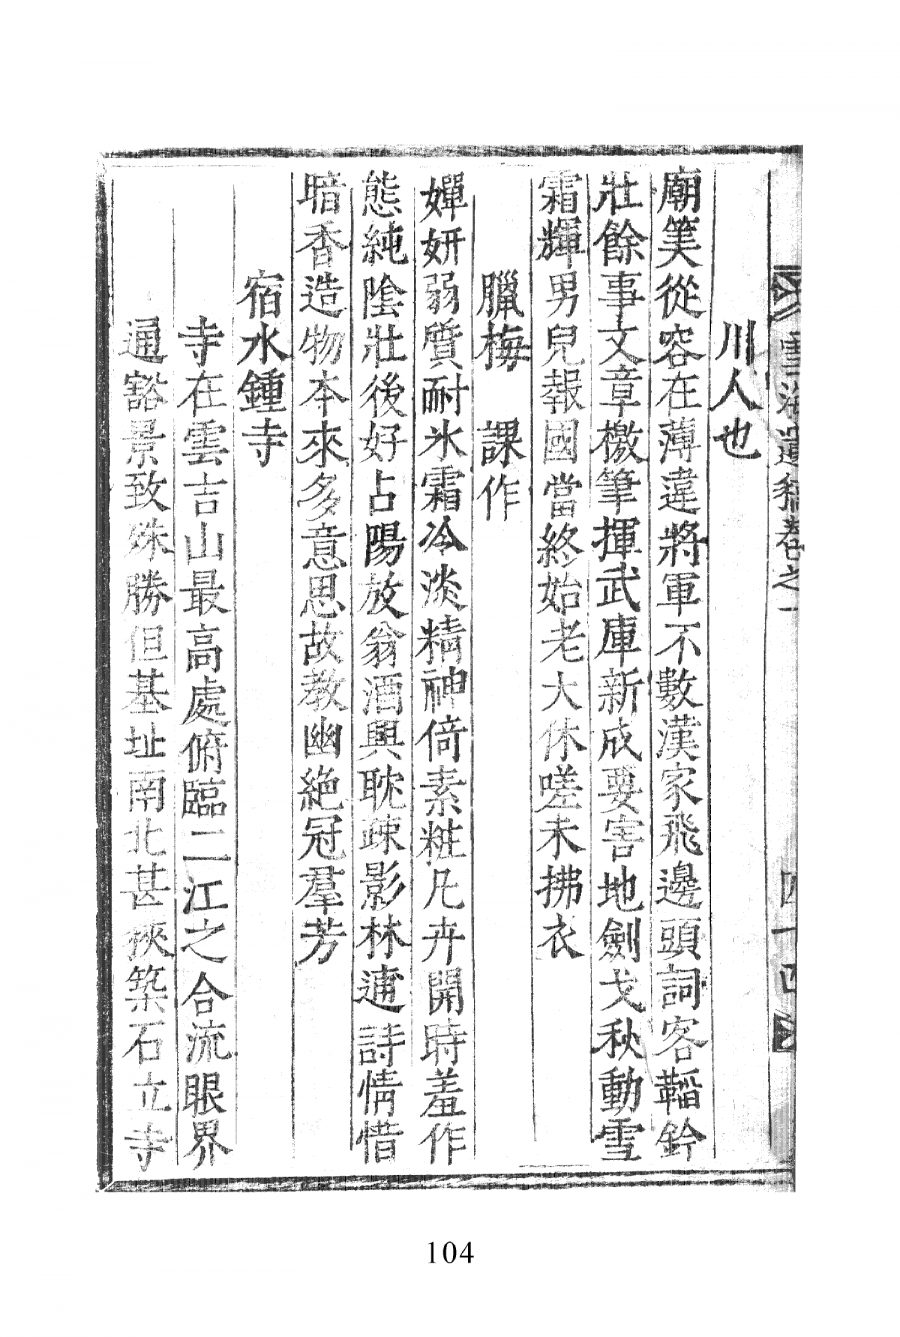 川人也
廟筭從容在薄違將軍不數漢家飛邊頭詞客韜鈐
壯餘事文章檄筆揮武庫新成要害地劍戈秋動雪
霜輝男兒報國當終始老大休嗟未拂衣
臘梅 課作
嬋妍弱質耐氷霜冷淡精神倚素粧凡卉開時羞作
態純陰壯後好占陽放翁酒興耽疎影林逋詩情惜
暗香造物本來多意思故教幽絶冠羣芳
宿水鍾寺
寺在雲吉山最高處俯臨二江之合流眼界
通豁景致殊勝但基址南北甚狹築石立寺
遺稿卷之一
四十四
104